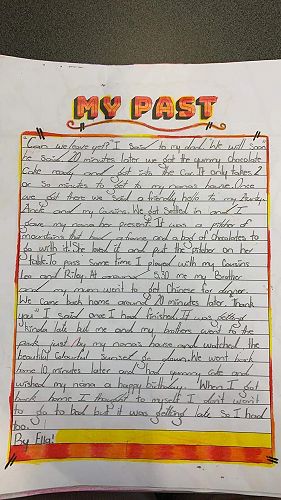 MY PAST
"Can we leave yet?" I said to my dad. "We will soon"
he said. 20 minutes later we got the yummy chocolate
cake ready and got into the car. It only takes 2
or so minutes to get to my nana's house. Once
we got there we said a friendly hello to my Aunty
and my cousins. We got settled in and I
gave my nana her present. It was a picture of
that had a frame and a box of chocolates to
go with it. She loved it and put the picture on her
table. To pass some time I played with my cousins
Leo and Riley. At around 5.30 me my Brother
and my mum went to get Chinese for dinner.
We came back home around 20 minutes later. "Thank
you" I said once I had finished. It was getting
kinda late but me and my brothers went to the
park just by my nana's house and watched the
beautiful colourful sunset go down. We went back
home 10 minutes later and had yummy cake and
wished my nana a happy birthday. When I got
back home I thought to myself I don't want
to go to bed but it was getting late so I had
too.
By Ella!